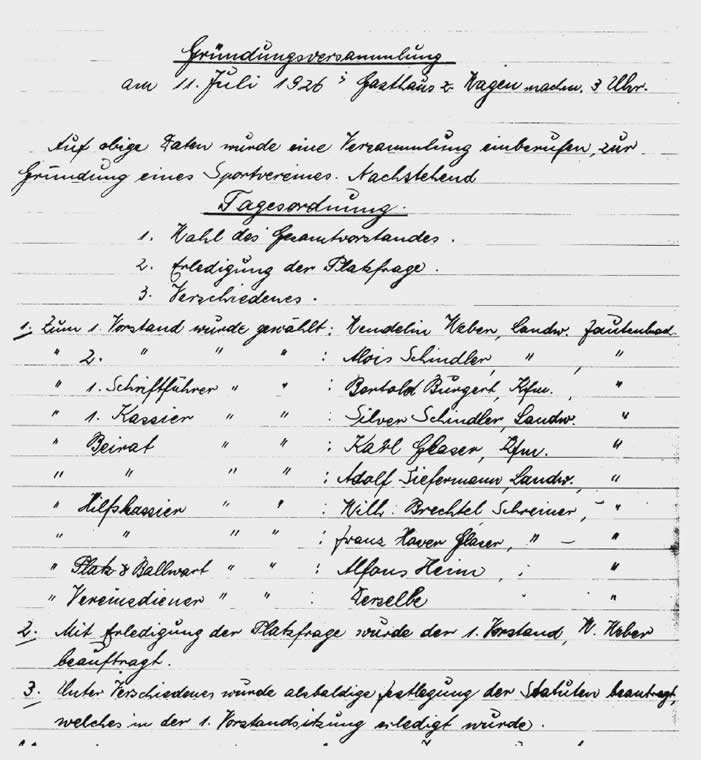 Gründungsversammlung
am 11. Juli 1926 i Gasthaus z. Wagen nachm. 3 Uhr.
Auf obige Daten wurde eine Versammlung einberufen, zur
Gründung eines Sportvereines. Nachstehend
Tagesordnung.
1. Wahl des Gesamtvorstandes.
2. Erledigung der Platzfrage.
3. Verschiedenes.
1. Zum 1. Vorstand wurde gewählt: Wendelin Weber, Landw. Fautenbach
" 2. " " " : Alois Schindler, " , "
" 1. Schriftführer " " : Bertold Burgert, Kfm. "
" 1. Kassier " " : Silver Schindler, Landw. "
" Beirat " " : Karl Glaser, Kfm. "
" " " " : Adolf Siefermann, Landw., "
" Hilfskassier " " : Wilh. Brechtel Schreiner, – "
" " " " : Franz Xaver Glaser, " – "
" Platz & Ballwart " " : Alfons Heim , "
" Vereinsdiener " " : Derselbe "
2. Mit Erledigung der Platzfrage wurde der 1. Vorstand, W. Weber
beauftragt.
3. Unter Verschiedenes wurde alsbaldige Festlegung der Statuten beantragt,
welches in der 1. Vorstandsitzung erledigt wurde.